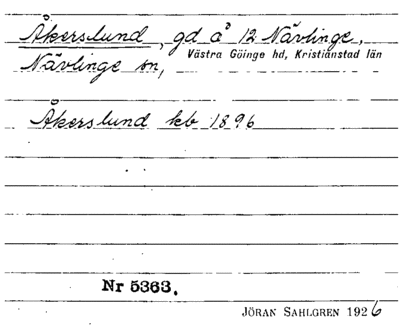 Åkerslund, gd å 12 Nävlinge,
Västra Göinge hd, Kristianstad län
Nävlinge sn,
Åkerslund kb 1896
Nr 5363.
JÖRAN SAHLGREN 1926